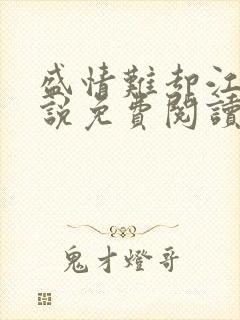 盛情難却江
說免費閱讀
鬼才燈哥